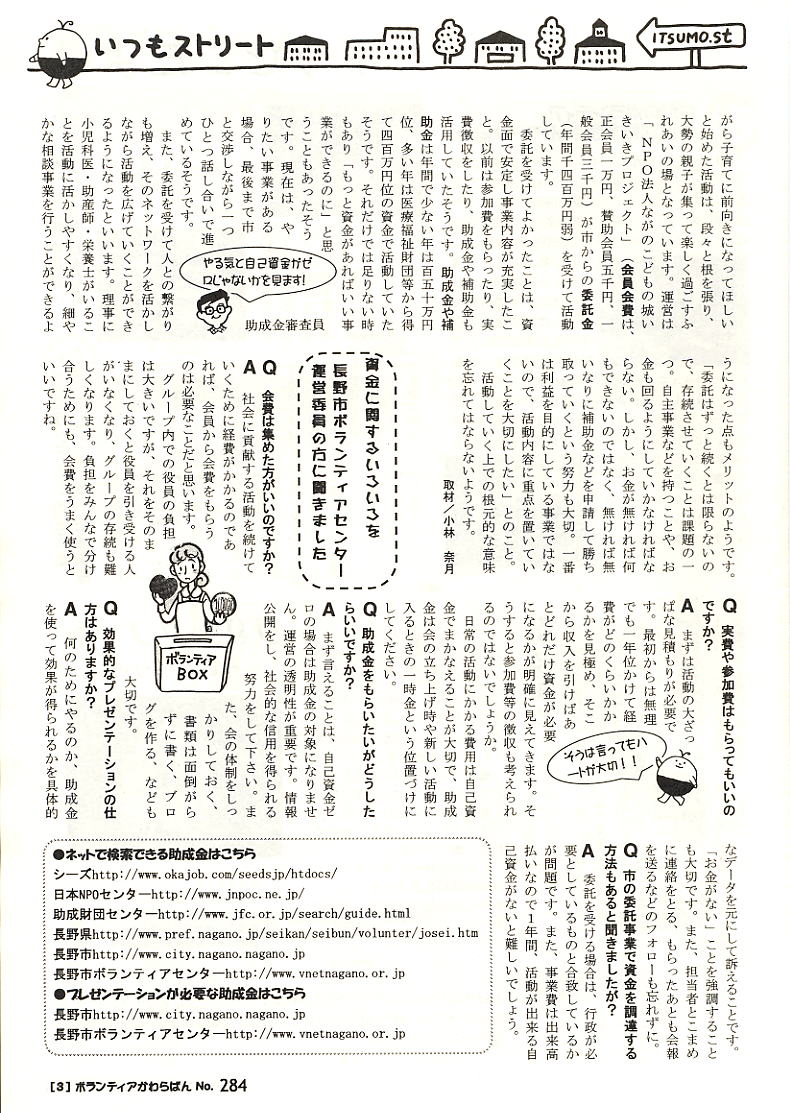 いつもストリート
ITSUMO.st
がら子育てに前向きになってほしい
と始めた活動は、段々と根を張り、
大勢の親子が集って楽しく過ごすふ
れあいの場となっています。運営は
「NPO法人ながのこどもの城い
きいきプロジェクト」(会員会費は、
正会員一万円、賛助会員五千円、一
般会員三千円)が市からの委託金
(年間千四百万円弱)を受けて活動
しています。
委託を受けてよかったことは、資
金面で安定し事業内容が充実したこ
と。以前は参加費をもらったり、実
費徴収をしたり、助成金や補助金も
活用していたそうです。助成金や補
助金は年間で少ない年は百五十万円
位、多い年は医療福祉財団等から得
て四百万円位の資金で活動していた
そうです。それだけでは足りない時
もあり「もっと資金があればいい事
業ができるのに」と思
うこともあったそう
です。現在は、や
りたい事業がある
場合、最後まで市
と交渉しながら一つ
ひとつ話し合いで進
めているそうです。
また、委託を受けて人との繋がり
も増え、そのネットワークを活かし
ながら活動を広げていくことができ
るようになったといいます。理事に
小児科医・助産師・栄養士がいるこ
とを活動に活かしやすくなり、細や
かな相談事業を行うことができるよ
やる気と自己資金がゼ
ロじゃないかを見ます!
助成金審査員
うになった点もメリットのようです。
「委託はずっと続くとは限らないの
で、存続させていくことは課題の一
つ。自主事業などを持つことや、お
金も回るようにしていかなければな
らない。しかし、お金が無ければ何
もできないのではなく、無ければ無
いなりに補助金などを申請して勝ち
取っていくという努力も大切。一番
は利益を目的にしている事業ではな
いので、活動内容に重点を置いてい
くことを大切にしたい」とのこと。
活動していく上での根元的な意味
を忘れてはならないようです。
取材/小林 奈月
資金に関するいろいろを
長野市ボランティアセンター
運営委員の方に聞きました
Q 会費は集めた方がいいのですか?
A 社会に貢献する活動を続けて
いくために経費がかかるのであ
れば、会員から会費をもらう
のは必要なことだと思います。
グループ内での役員の負担
は大きいですが、それをそのま
まにしておくと役員を引き受ける人
がいなくなり、グループの存続も難
しくなります。負担をみんなで分け
合うためにも、会費をうまく使うと
いいですね。
ボランティア
BOX
Q 実費や参加費はもらってもいいの
ですか?
A まずは活動の大ざっ
ぱな見積もりが必要で
す。最初からは無理
でも一年位かけて経
費がどのくらいかか
るかを見極め、そこ
から収入を引けばあ
とどれだけ資金が必要
になるかが明確に見えてきます。そ
うすると参加費等の徴収も考えられ
るのではないでしょうか。
日常の活動にかかる費用は自己資
金でまかなえることが大切で、助成
金は会の立ち上げ時や新しい活動に
入るときの一時金という位置づけに
してください。
そうは言ってもハ
ートが大切!!
Q 助成金をもらいたいがどうした
らいいですか?
A まず言えることは、自己資金ゼ
ロの場合は助成金の対象になりませ
ん。運営の透明性が重要です。情報
公開をし、社会的な信用を得られる
努力をして下さい。ま
た、会の体制をしっ
かりしておく、
書類は面倒がら
ずに書く、ブロ
グを作る、なども
大切です。
Q 効果的なプレゼンテーションの仕
方はありますか?
A 何のためにやるのか、助成金
を使って効果が得られるかを具体的
なデータを元にして訴えることです。
「お金がない」ことを強調すること
も大切です。また、担当者とこまめ
に連絡をとる、もらったあとも会報
を送るなどのフォローも忘れずに。
Q 市の委託事業で資金を調達する
方法もあると聞きましたが?
A 委託を受ける場合は、行政が必
要としているものと合致しているか
が問題です。また、事業費は出来高
払いなので1年間、活動が出来る自
己資金がないと難しいでしょう。
●ネットで検索できる助成金はこちら
シーズhttp://www.okajob.com/seedsjp/htdocs/
日本NPOセンターhttp://www.jnpoc.ne.jp/
助成財団センターhttp://www.jfc.or.jp/search/guide.html
長野県http://www.pref.nagano.jp/seikan/seibun/volunter/josei.htm
長野市http://www.city.nagano.nagano.jp
長野市ボランティアセンターhttp://www.vnetnagano.or.jp
●プレゼンテーションが必要な助成金はこちら
長野市http://www.city.nagano.nagano.jp
長野市ボランティアセンターhttp://www.vnetnagano.or.jp
[3] ボランティアかわらばん No. 284